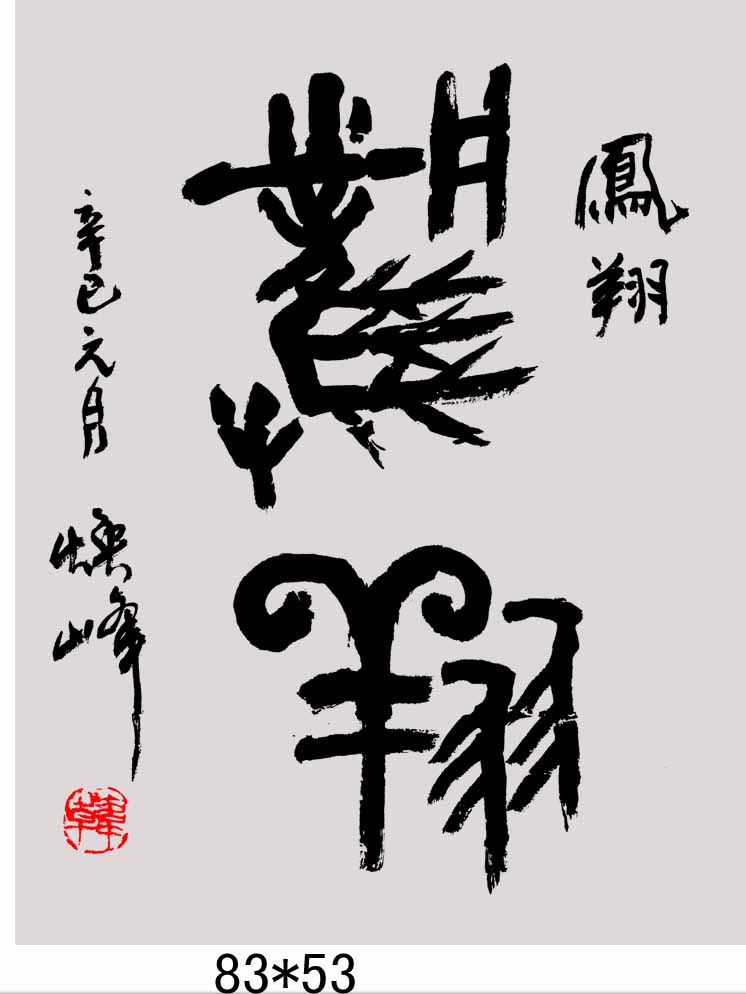 鳳翔
鳳翔
辛巳元月 煥峰
韓
83*53